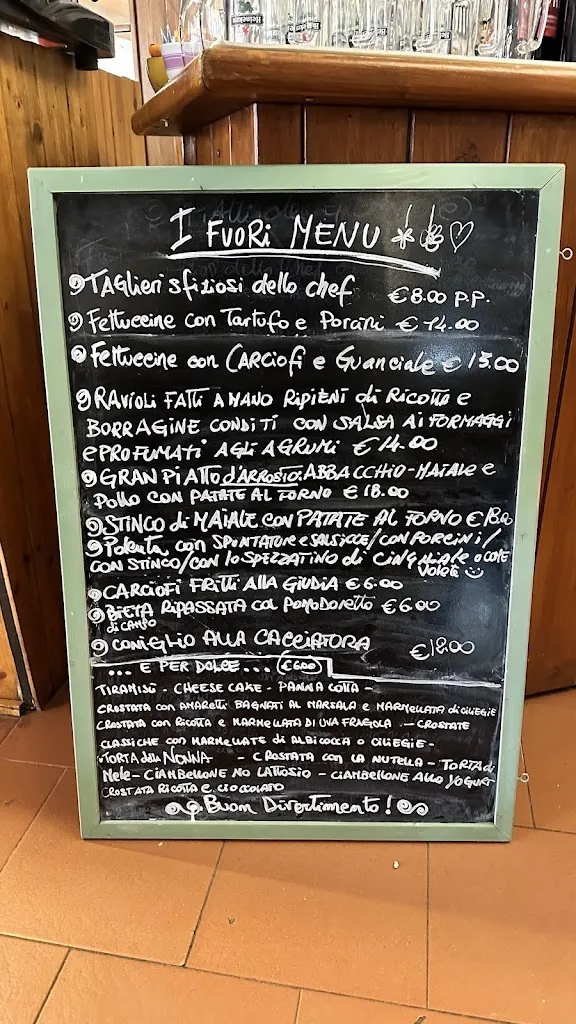 Heineken
I FUORI MENU
TAGLIERI SFIZIOSI dello chef €8.00 P.P.
Fettuccine con Tartufo e Porcini €14.00
Fettuccine con CARCIOFI e GUANCIALE €13.00
RAVIOLI FATTI A MANO RIPIENI di RICOTTA e
BORRAGINE CONDITI CON SALSA AI FORMAGGI
e PROFUMATI AGLI AGRUMI €14.00
GRAN PIATTO d'ARROSTO: ABBACCHIO-MAIALE e
POLLO CON PATATE AL FORNO €18.00
STINCO di MAIALE CON PATATE AL FORNO €18.00
Polenta con SPUNTATURE e SALSICCE/CON PORCINI/
CON STINCO/CON lo SPEZZATINO di CINGHIALE o COME
VOLETE
CARCIOFI FRITTI ALLA GIUDIA €6.00
BIETA RIPASSATA col Pomodoretto €6.00
di CAMPO
CONIGLIO ALLA CACCIATORA €18.00
... E PER DOLCE... €6.00
TIRAMISÙ - CHEESE CAKE - PANNA COTTA -
CROSTATA con AMARETTI BAGNATI AL MARSALA e MARMELLATA di CILIEGIE
CROSTATA con RICOTTA e MARMELLATA DI UVA FRAGOLA - CROSTATE
CLASSICHE con MARMELLATE di ALBICOCCA o CILIEGIE -
TORTA della NONNA - CROSTATA con LA NUTELLA - TORTA di
Mele - CIAMBELLONE NO LATTOSIO - CIAMBELLONE ALLO YOGURT
CROSTATA RICOTTA E CIOCCOLATO
Buon Divertimento!